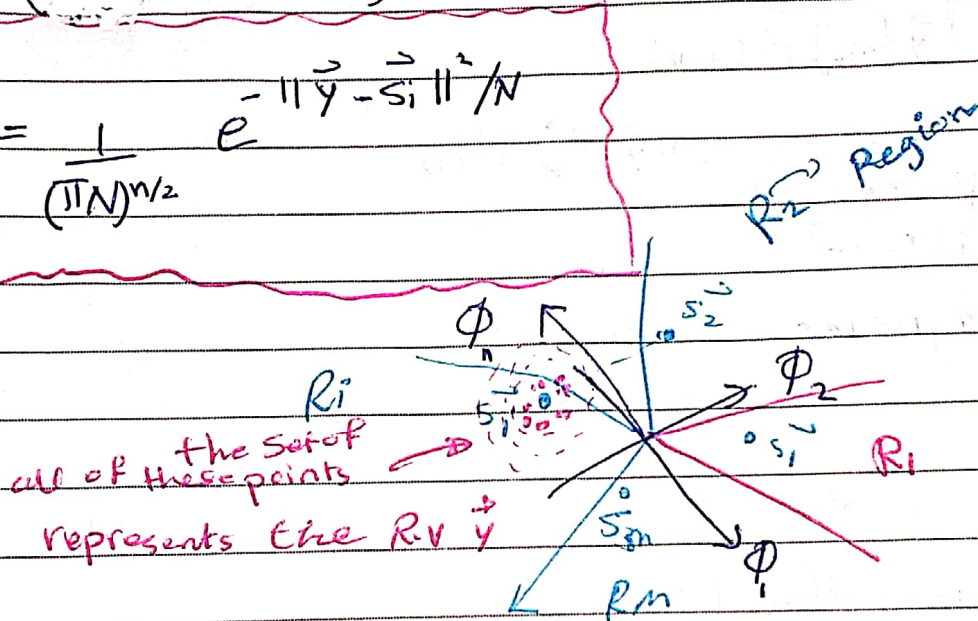 = 1/(πN)^n/2 e^-||y⃗ - s⃗i||²/N
R2 → Region
S⃗2
Φn
Φ2
Ri
S⃗i
S⃗1
R1
the set of
all of these points →
represents the R.v y⃗
S⃗m
Φ1
RM